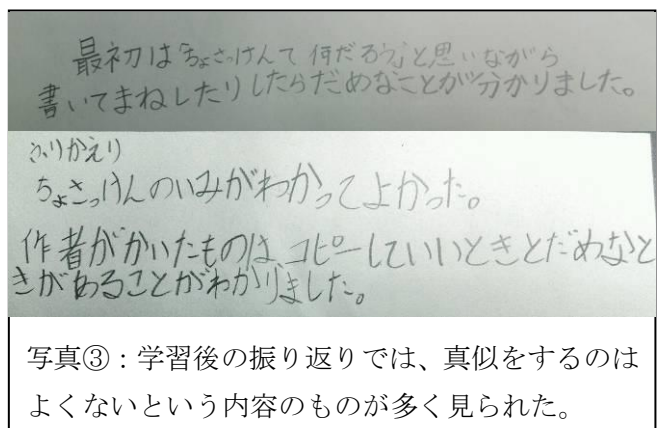 最初は「ちょさっけんて何だろう」と思いながら
書いてまねしたりしたらだめなことが分かりました。
ふりかえり
ちょさっけんのいみがわかってよかった。
作者がかいたものは、コピーしていいときとだめなと
きがあることがわかりました。
写真③:学習後の振り返りでは、真似をするのは
よくないという内容のものが多く見られた。